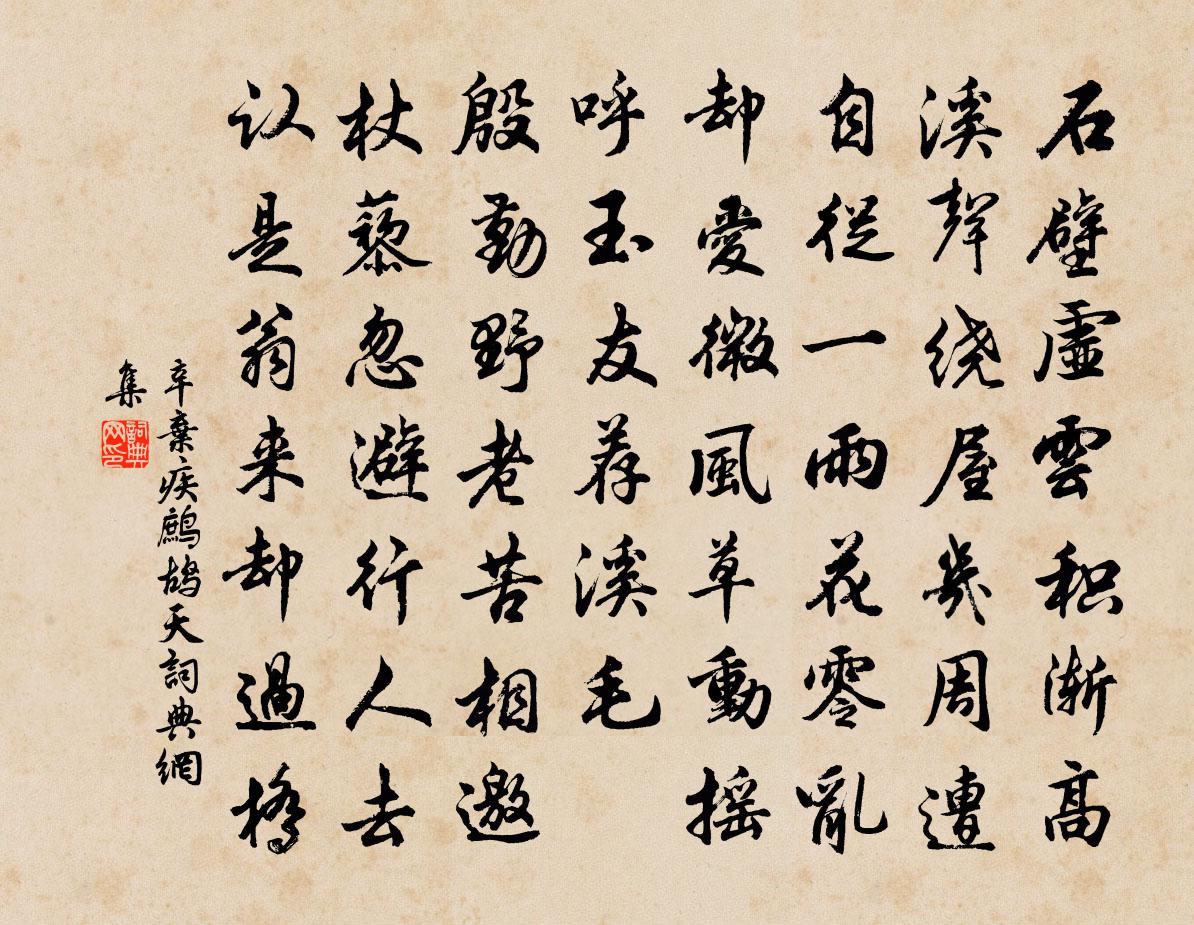 石壁虛雲积渐高
溪聲绕屋幾周遭
自從一雨花零亂
却愛微風草動摇
呼玉友荐溪毛
殷勤野老苦相邀
杖藜忽避行人去
认是翁来却過橋
辛棄疾鷓鴣天詞典網
集
詞典网印